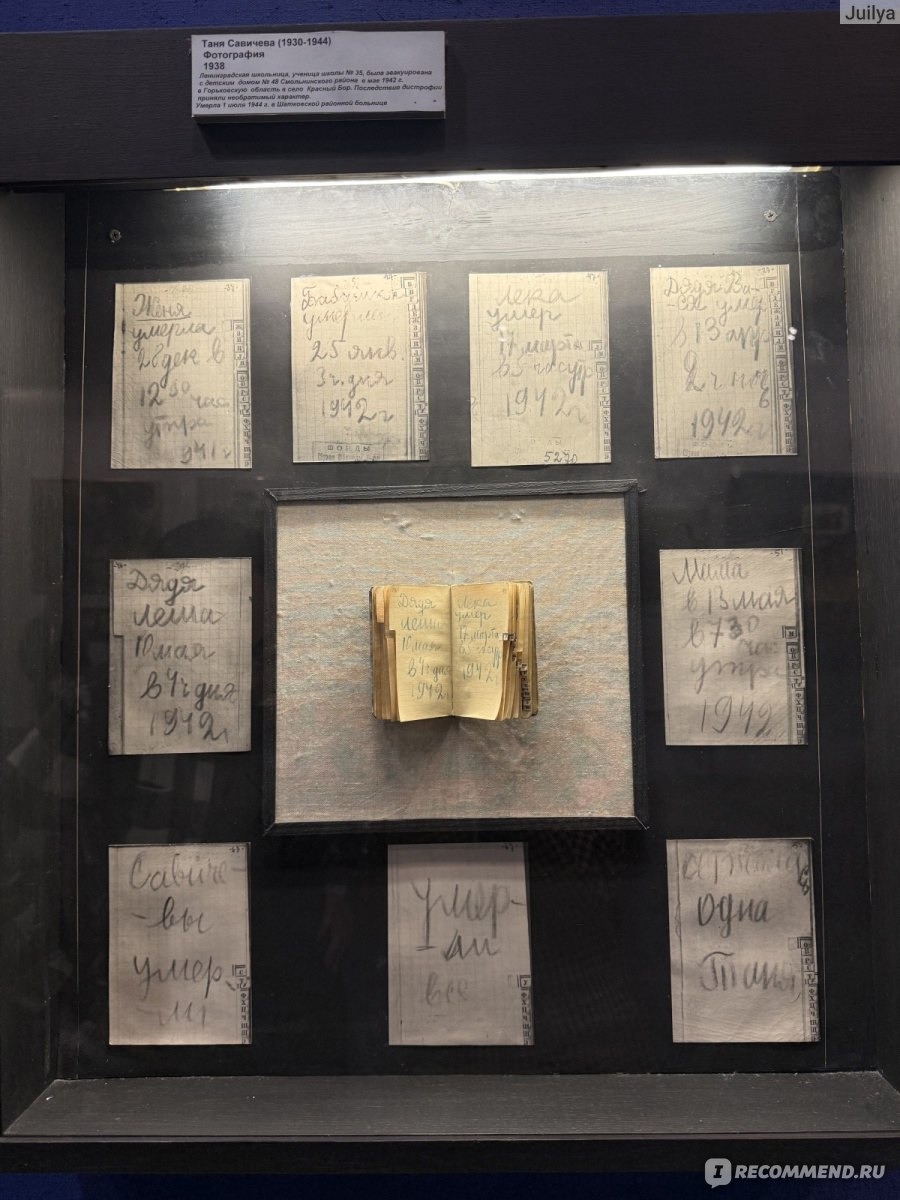 Juilya
Таня Савичева (1930-1944)
Фотография
1938
Ленинградская школьница, ученица школы № 35, была эвакуирована
с детским домом № 48 Смольнинского района в мае 1942 г.
в Горьковскую область в село Красный Бор. Последствия дистрофии
приняли необратимый характер.
Умерла 1 июля 1944 г. в Шатковской районной больнице
Женя
умерла
28 дек в
12 30 час
утра
941 г
Бабушка
умерла
25 янв.
3 ч. дня
1942 г
ФОНДЫ
Лека
умер
17 марта
в 5 час утр
1942 г
5270
Дядя Ва-
ся умер
в 13 апр
2 ч ноч
1942 г
Дядя
Леша
10 мая
в 4 ч дня
1942 г
Дядя
Леша
10 мая
в 4 ч дня
1942 г
Лека
умер
17 марта
1942 г
Мама
в 13 мая
в 7 30
час
утра
1942
Савиче-
-вы
умер
ли
умер-
-ли
все
одна
Таня
IRECOMMEND.RU